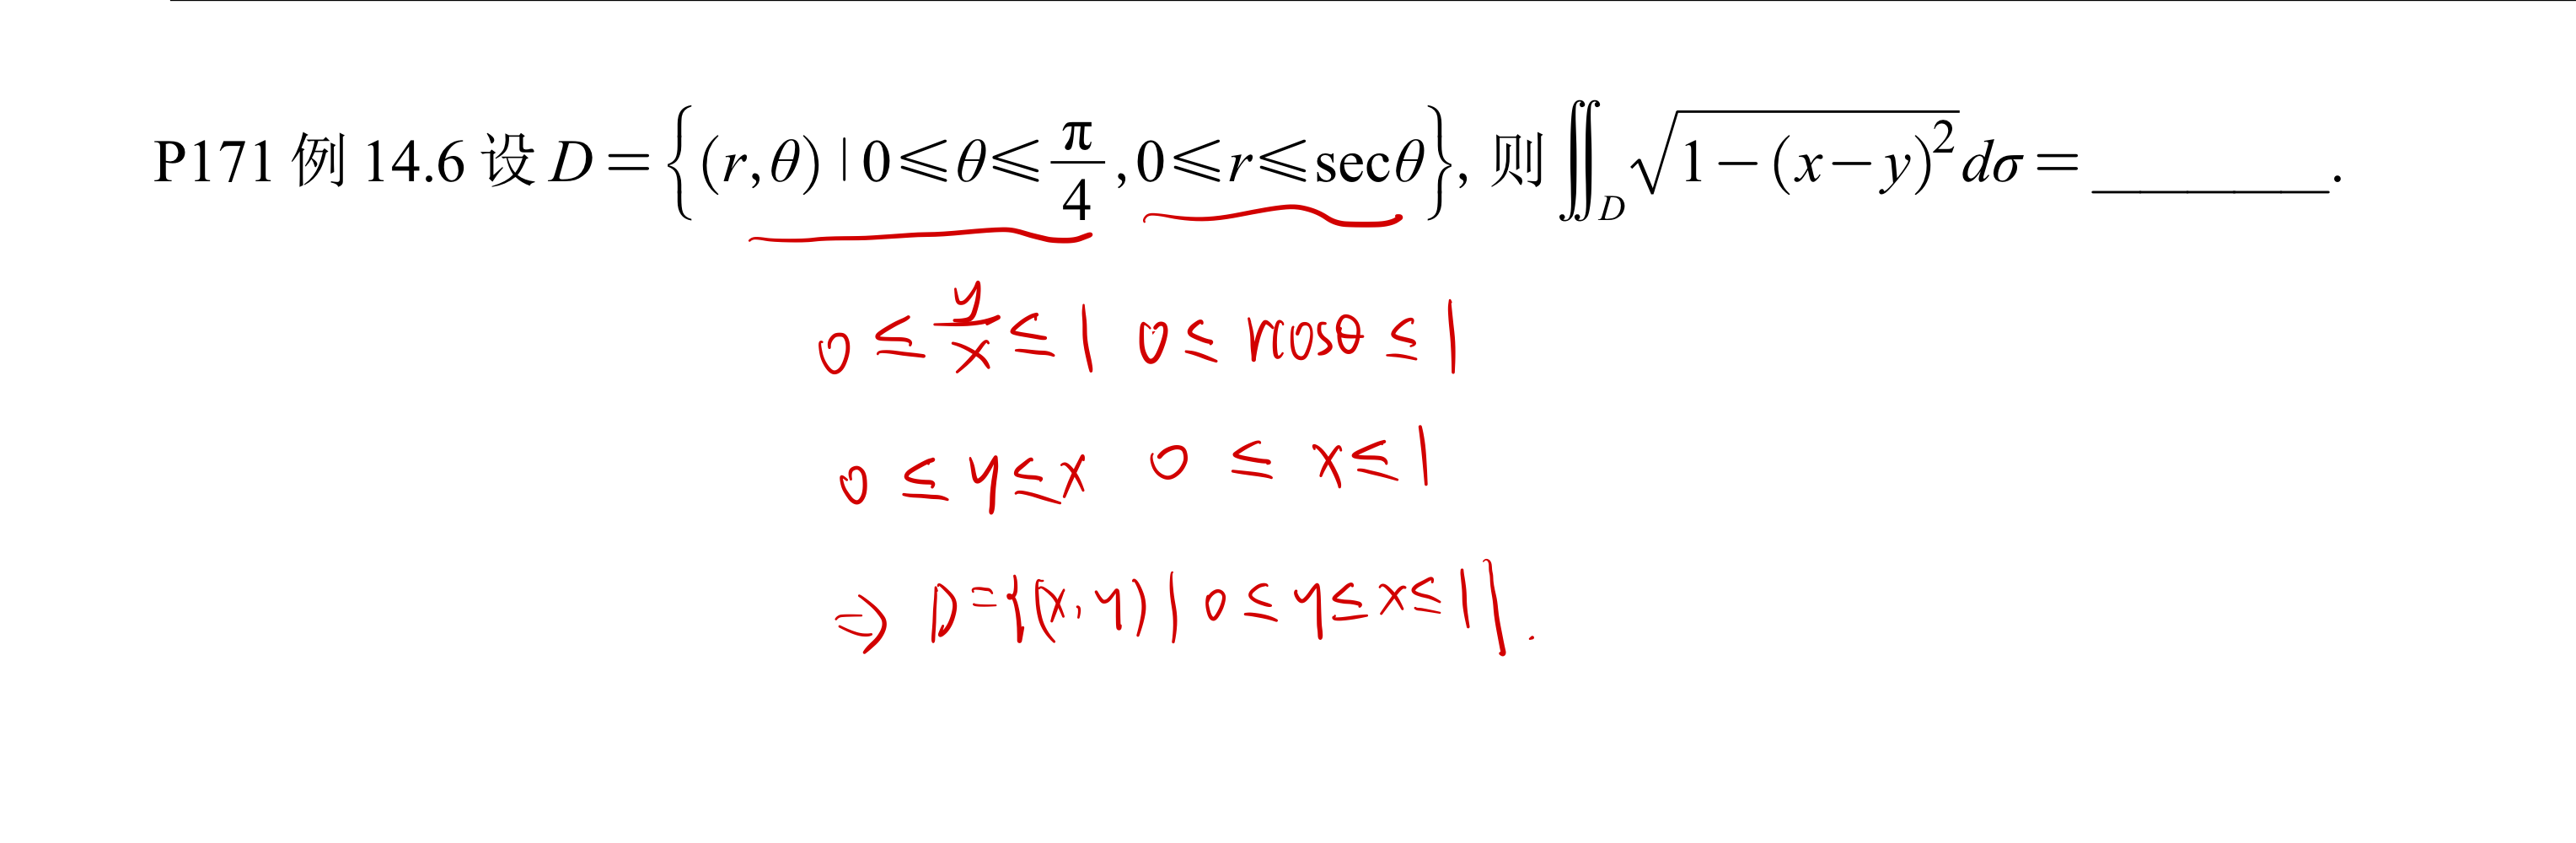 P171 例 14.6 设 D = {(r,θ) | 0⩽θ⩽π/4, 0⩽r⩽secθ}, 则 ∬_D √(1−(x−y)²) dσ = ________.
0 ≤ y/x ≤ 1 0 ≤ rcosθ ≤ 1
0 ≤ y ≤ x 0 ≤ x ≤ 1
⇒ D={(x,y) | 0 ≤ y ≤ x ≤ 1}.